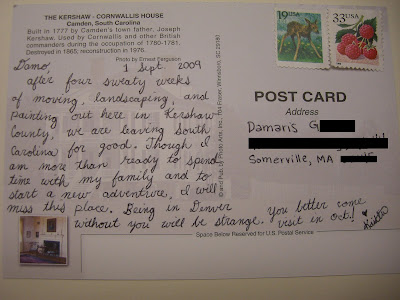 THE KERSHAW - CORNWALLIS HOUSE
Camden, South Carolina
Built in 1777 by Camden's town father, Joseph
Kershaw. Used by Cornwallis and other British
commanders during the occupation of 1780-1781.
Destroyed in 1865, reconstruction in 1976.
Photo by Ernest Ferguson
19 USA
33 USA
1 Sept. 2009
Damo,
after four sweaty weeks
of moving, landscaping, and
painting out here in Kershaw
County, we are leaving South
Carolina for good. Though I
am more than ready to spend
time with my family and to
start a new adventure, I will
miss this place. Being in Denver
without you will be strange. you better come
visit in Oct!
Kristie
POST CARD
Address
Damaris G
Somerville, MA
Space Below Reserved for U.S. Postal Service